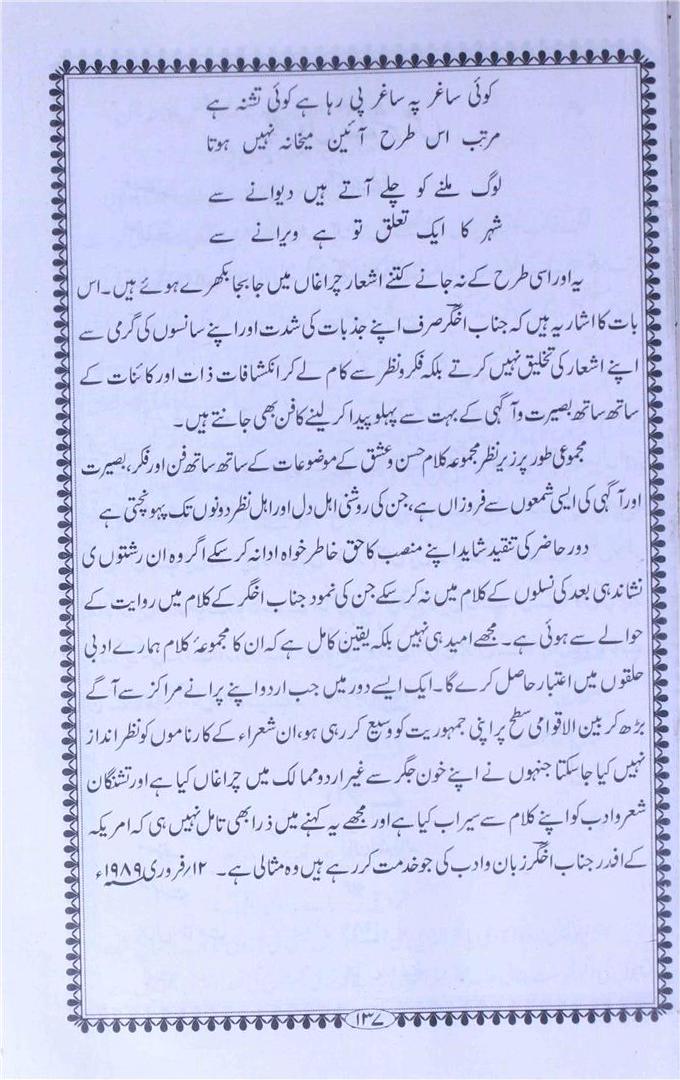 کوئی ساغر پہ ساغر پی رہا ہے کوئی تشنہ ہے
مرتب اس طرح آئین میخانہ نہیں ہوتا
لوگ ملنے کو چلے آتے ہیں دیوانے سے
شہر کا ایک تعلق تو ہے ویرانے سے
یہ اور اسی طرح کے نہ جانے کتنے اشعار چراغاں میں جا بجا بکھرے ہوئے ہیں۔ اس
بات کا اشاریہ ہیں کہ جناب اخگر صرف اپنے جذبات کی شدت اور اپنے سانسوں کی گرمی سے
اپنے اشعار کی تخلیق نہیں کرتے بلکہ فکر و نظر سے کام لے کر انکشافات ذات اور کائنات کے
ساتھ ساتھ بصیرت و آگہی کے بہت سے پہلو پیدا کر لینے کا فن بھی جانتے ہیں۔
مجموعی طور پر زیر نظر مجموعہ کلام حسن و عشق کے موضوعات کے ساتھ ساتھ فن اور فکر، بصیرت
اور آگہی کی ایسی شمعوں سے فروزاں ہے، جن کی روشنی اہل دل اور اہل نظر دونوں تک پہونچتی ہے
دور حاضر کی تنقید شاید اپنے منصب کا حق خاطر خواہ ادا نہ کر سکے اگر وہ ان رشتوں ی
نشاندہی بعد کی نسلوں کے کلام میں نہ کر سکے جن کی نمود جناب اخگر کے کلام میں روایت کے
حوالے سے ہوئی ہے۔ مجھے امید ہی نہیں بلکہ یقین کامل ہے کہ ان کا مجموعۂ کلام ہمارے ادبی
حلقوں میں اعتبار حاصل کرے گا۔ ایک ایسے دور میں جب اردو اپنے پرانے مراکز سے آگے
بڑھ کر بین الاقوامی سطح پر اپنی جمہوریت کو وسیع کر رہی ہو، ان شعراء کے کارناموں کو نظر انداز
نہیں کیا جا سکتا جنہوں نے اپنے خون جگر سے غیر اردو ممالک میں چراغاں کیا ہے اور تشنگان
شعر و ادب کو اپنے کلام سے سیراب کیا ہے اور مجھے یہ کہنے میں ذرا بھی تامل نہیں ہی کہ امریکہ
کے افدر جناب اخگر زبان و ادب کی جو خدمت کر رہے ہیں وہ مثالی ہے۔ ۱۲؍ فروری ۱۹۸۹ء
۱۳۷